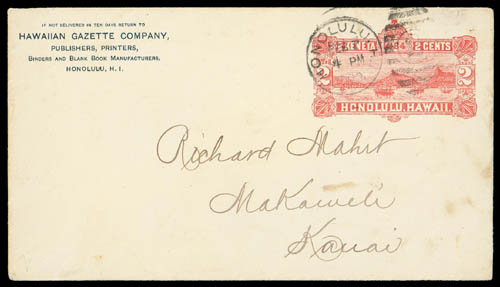 IF NOT DELIVERED IN TEN DAYS RETURN TO
HAWAIIAN GAZETTE COMPANY,
PUBLISHERS, PRINTERS,
BINDERS AND BLANK BOOK MANUFACTURERS,
HONOLULU, H. I.
HONOLULU
4 PM
2 CENTS
2 2
HONOLULU, HAWAII.
Richard Mahrt
Makaweli
Kauai